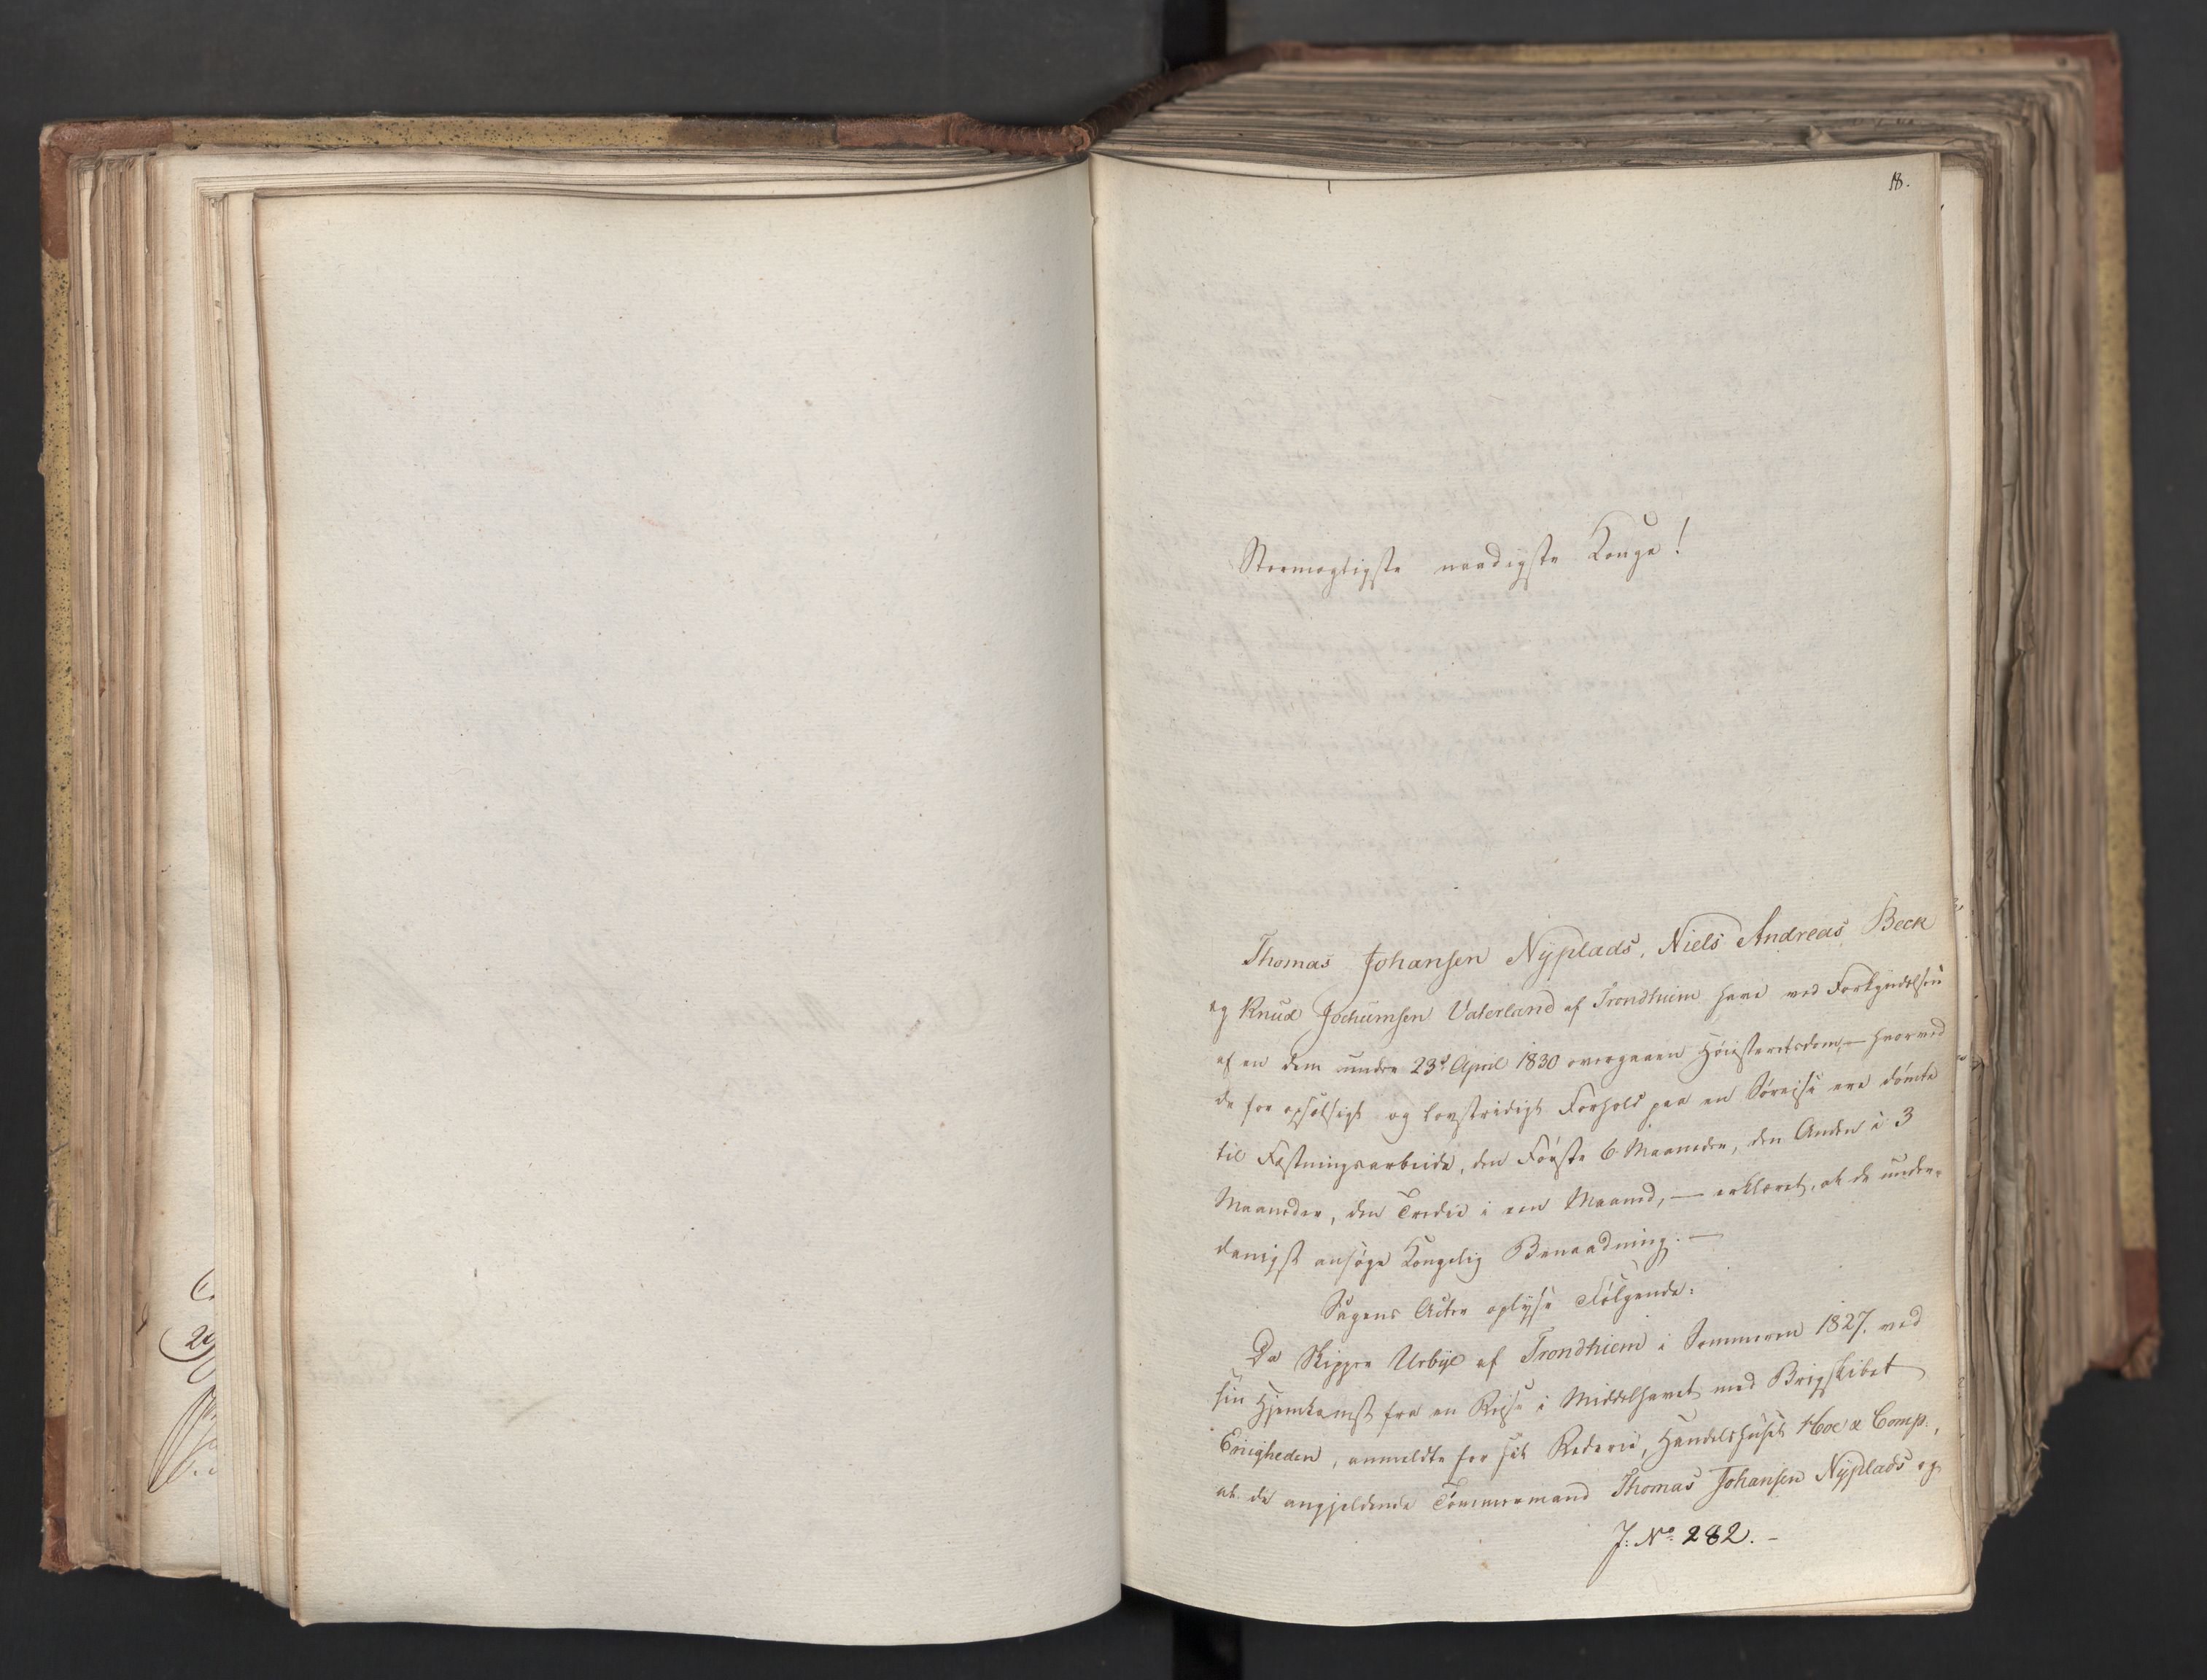 18.
Stormægtigste naadigste Konge!
Thomas Johansen Nyplads, Niels Andreas Beck
og Knud Jochumsen Vaterland af Trondhiem have ved Forkyndelsen
af en dem under 23de April 1830 overgaaen Høiesteretsdom, — hvorved
de for opsætsigt og lovstridigt Forhold paa en Søreise ere dømte
til Fæstningsarbeide, den Første 6 Maaneder, den Anden i 3
Maaneder, den Tredie i een Maaned, — erklæret, at de under-
danigst ansøge Kongelig Benaadning. —
Sagens Acter oplyse Følgende:
Da Skipper Urbye af Trondhiem i Sommeren 1827. ved
sin Hjemkomst fra en Reise i Middelhavet med Brigskibet
Enigheden, anmeldte for sit Rederie, Handelshuset Hoe & Comp.,
at de angjeldende Tømmermand Thomas Johansen Nyplads og
J: No. 282. -